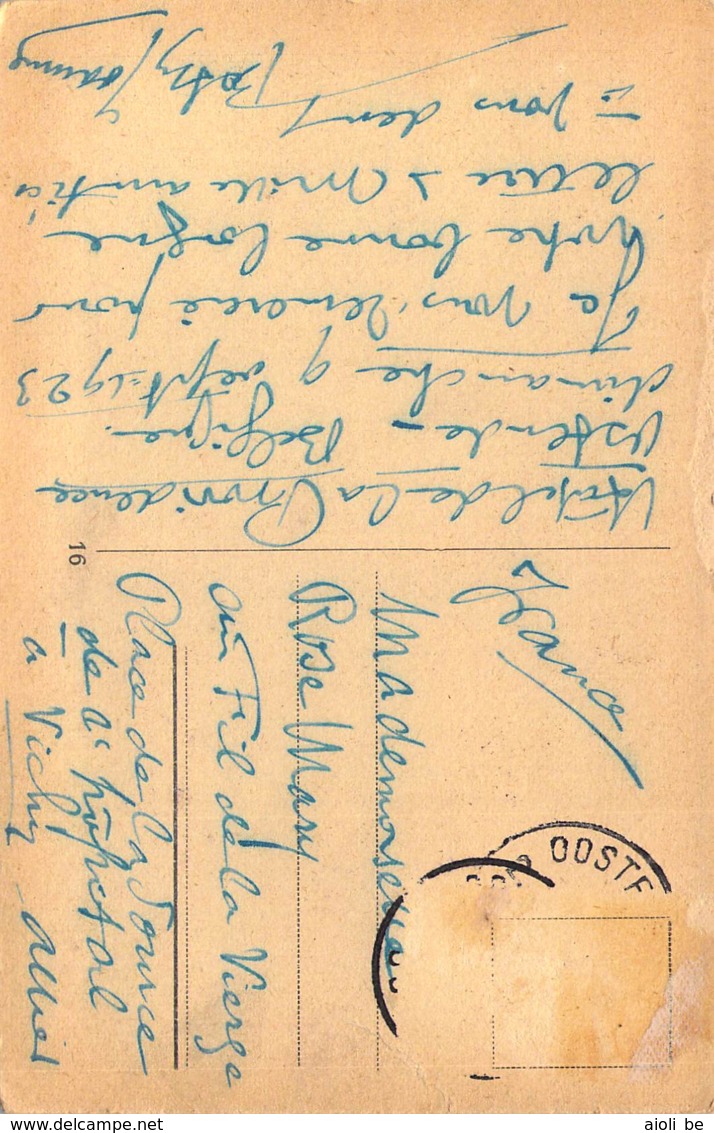 Hôtel de la Providence
Ostende - Belgique
dimanche 9 sept. 1923
Je vous remercie pour
votre bonne longue
lettre > mille amitiés
à vous deux
16
France
Mademoiselle
Rose Mary
au Fil de la Vierge
Place de la Source
de l'hôpital
à Vichy Allier
OOSTE
aioli be